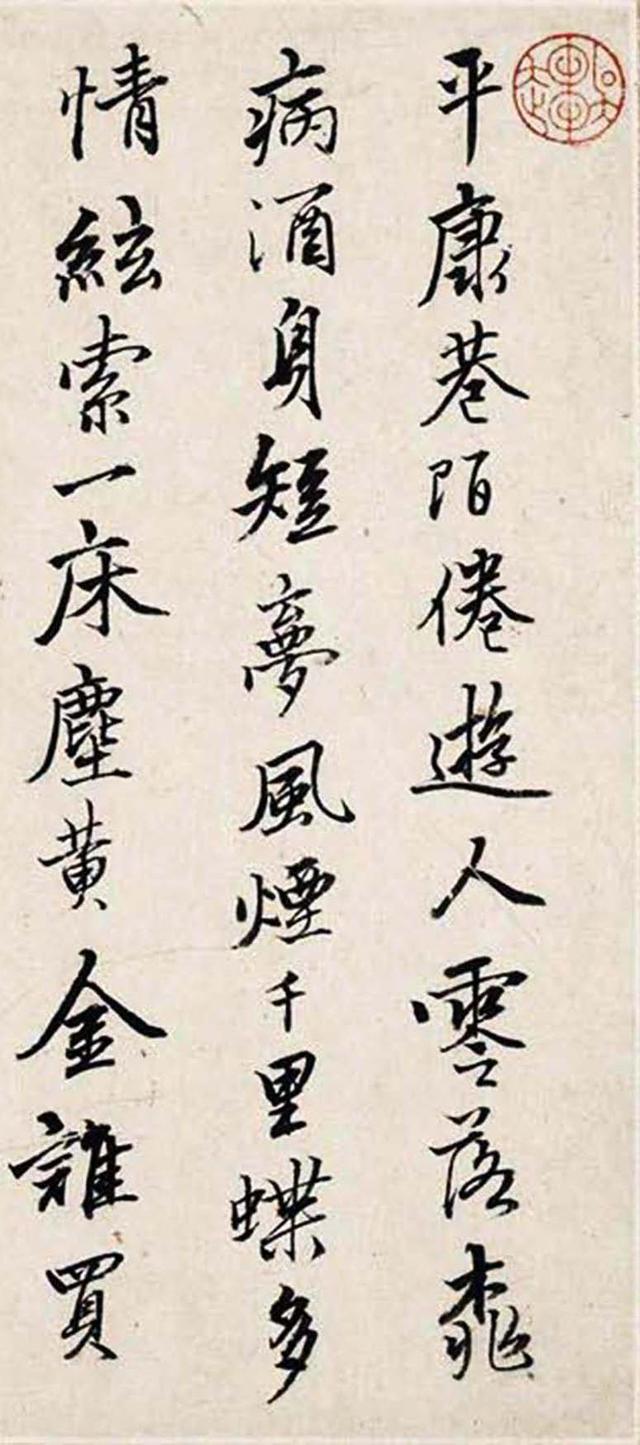 平康巷陌倦遊人零落桃
病酒身短夢風煙千里蝶多
情絃索一床塵黃金誰買